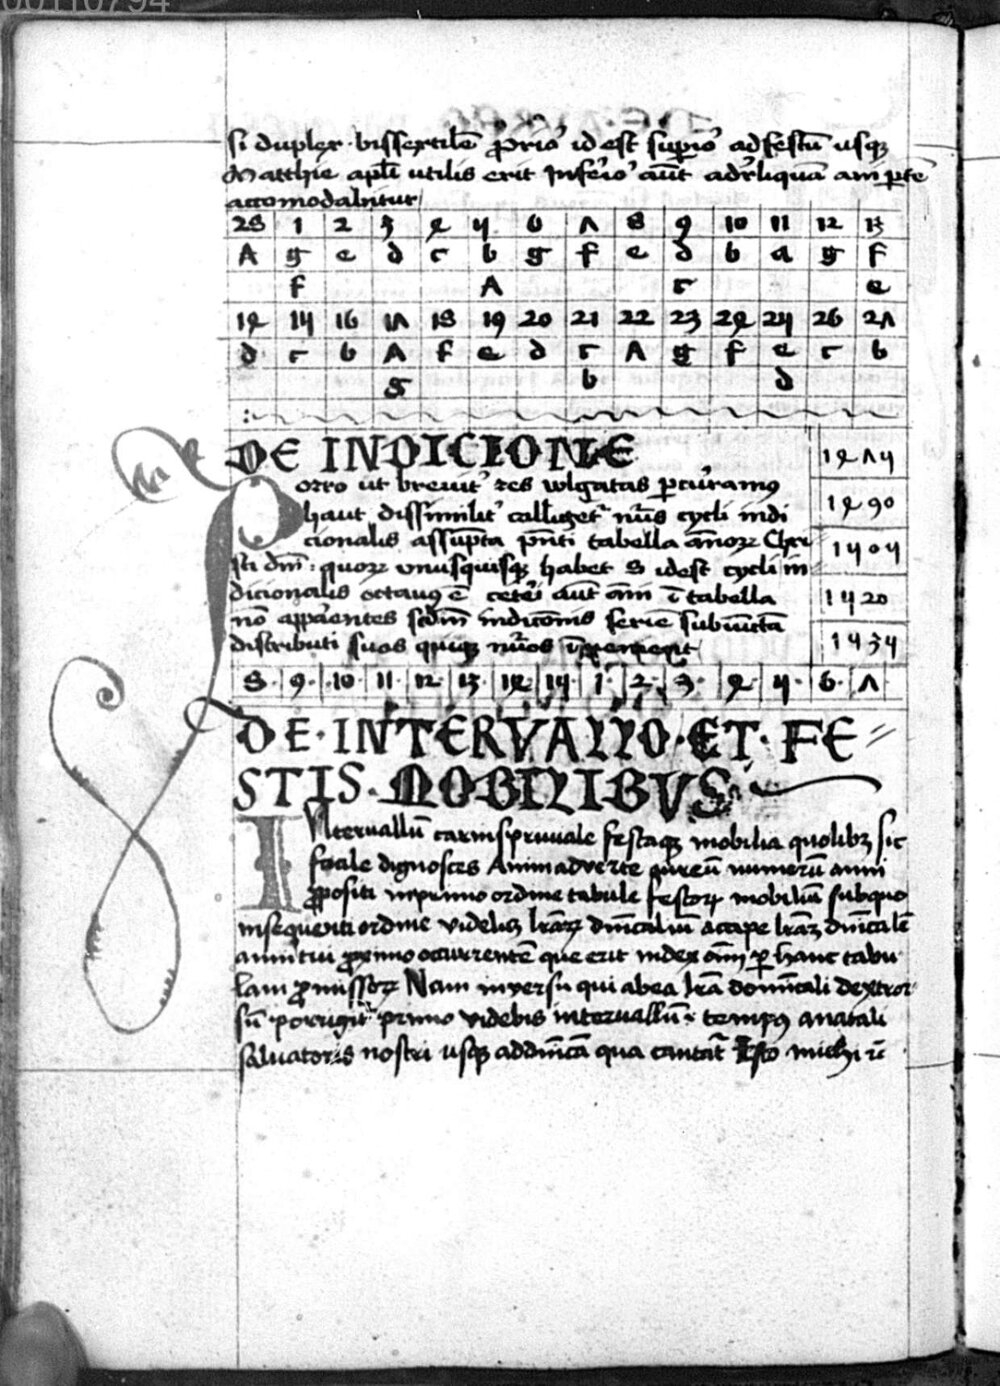 00110794
si duplex bissextilē prior̄ id est supior̄ ad festū usqꝫ
Matthie apłi utilis erit Inferior̄ aūt ad reliquā anī ꝑtē
accomodabitur
28 1 2 3 4 5 6 7 8 9 10 11 12 13
A g e d c b g f e d b a g f
f A c e
14 15 16 17 18 19 20 21 22 23 24 25 26 27
d c b A f e d c A g f e c b
g b d
DE INDICIONE 1475
Porro ut breviť res wlgatas ꝑcurramꝰ
haut dissimiliť colligetˀ nūs cycli indi 1490
cionalis assūpta pn̄ti tabella annoꝝ Chri
sti dn̄i : quoꝝ vnusquisqꝫ habet 8 idest cycli in 1505
dicionalis octauꝰ ē ceteri aūt anni ī tabella 1520
nō apparentes scdm̄ indiccōnis seriē subiūctā
distributi suos quiqꝫ nūos 1535
8 · 9 · 10 · 11 · 12 · 13 · 14 · 15 · 1 · 2 · 3 · 4 · 5 · 6 · 7
DE · INTERVALLO · ET · FE
STIS · MOBILIBVS
INtervallū carnispriuale festaqꝫ mobilia quolibꝫ sic
facile dignosces Animadverte aureū numerū anni
ꝓpositi inprimo ordine tabule festoꝝ mobiliū subquo
insequenti ordine videlicꝫ lr̄aꝝ dn̄icaliū accipe lr̄aꝫ dn̄icalē
anni tui proximo occurrentē que erit index om̄i ꝑ hanc tabu
lam ꝓmissoꝝ Nam inversu qui abea lr̄a domīcali dextror
sū porrigitˀ primo videbis intervallū tempꝰ anatali
saluatoris nostri usqꝫ addn̄icā qua cantat̄ Esto michi ī